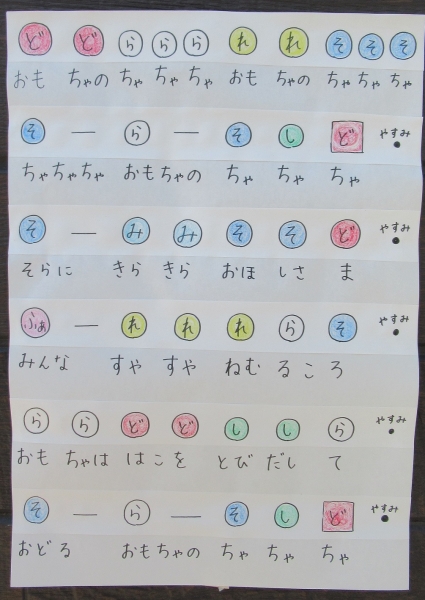 ど ど ら ら ら れ れ そ そ そ
おも ちゃの ちゃ ちゃ ちゃ おも ちゃの ちゃ ちゃ ちゃ
そ ー ら ー そ し ど やすみ
ちゃちゃちゃ おもちゃの ちゃ ちゃ ちゃ
そ ー み み そ そ ど やすみ
そらに きら きら おほ しさ ま
ふぁ ー れ れ れ ら そ やすみ
みんな すや すや ねむ るこ ろ
ら ら ど ど し し ら やすみ
おも ちゃは はこを とび だし て
そ ー ら ー そ し ど やすみ
おどる おもちゃの ちゃ ちゃ ちゃ